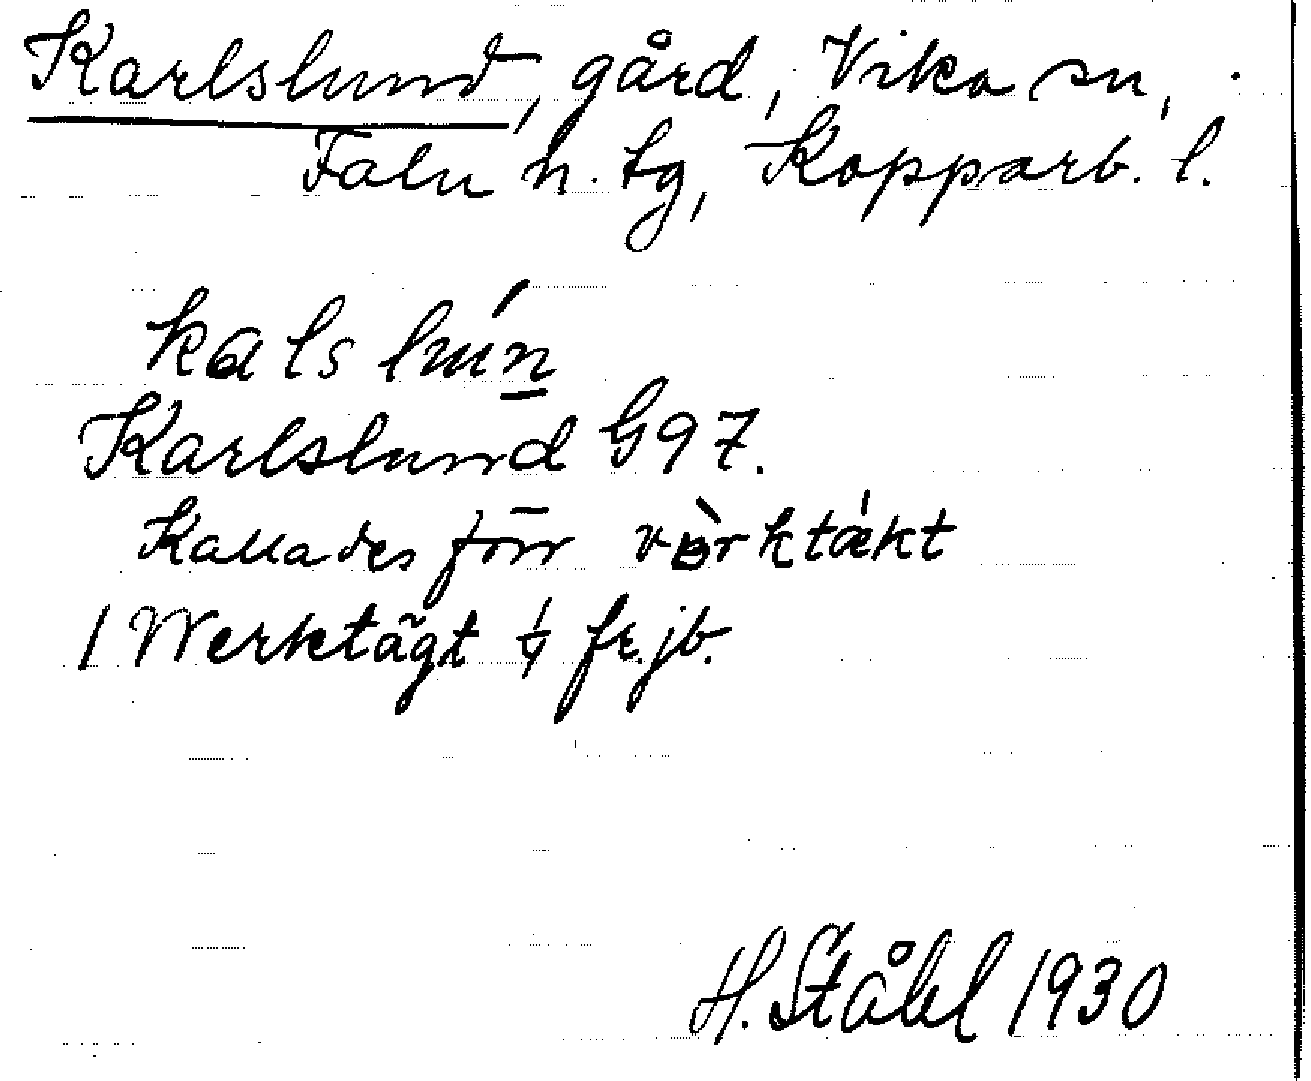 Karlslund, gård, Vika sn,
Falu n. tg, Kopparb. l.
kals luń̲
Karlslund G97.
Kallades förr vèrktǽkt
1 Werktägt ¼ fr. jb.
H. Ståhl 1930